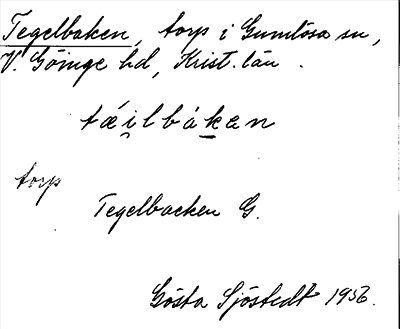 Tegelbaken, torp i Gumlösa sn,
V. Göinge hd, Krist. län.
tæi̯lbáḵen
torp
Tegelbacken G.
Gösta Sjöstedt 1936.